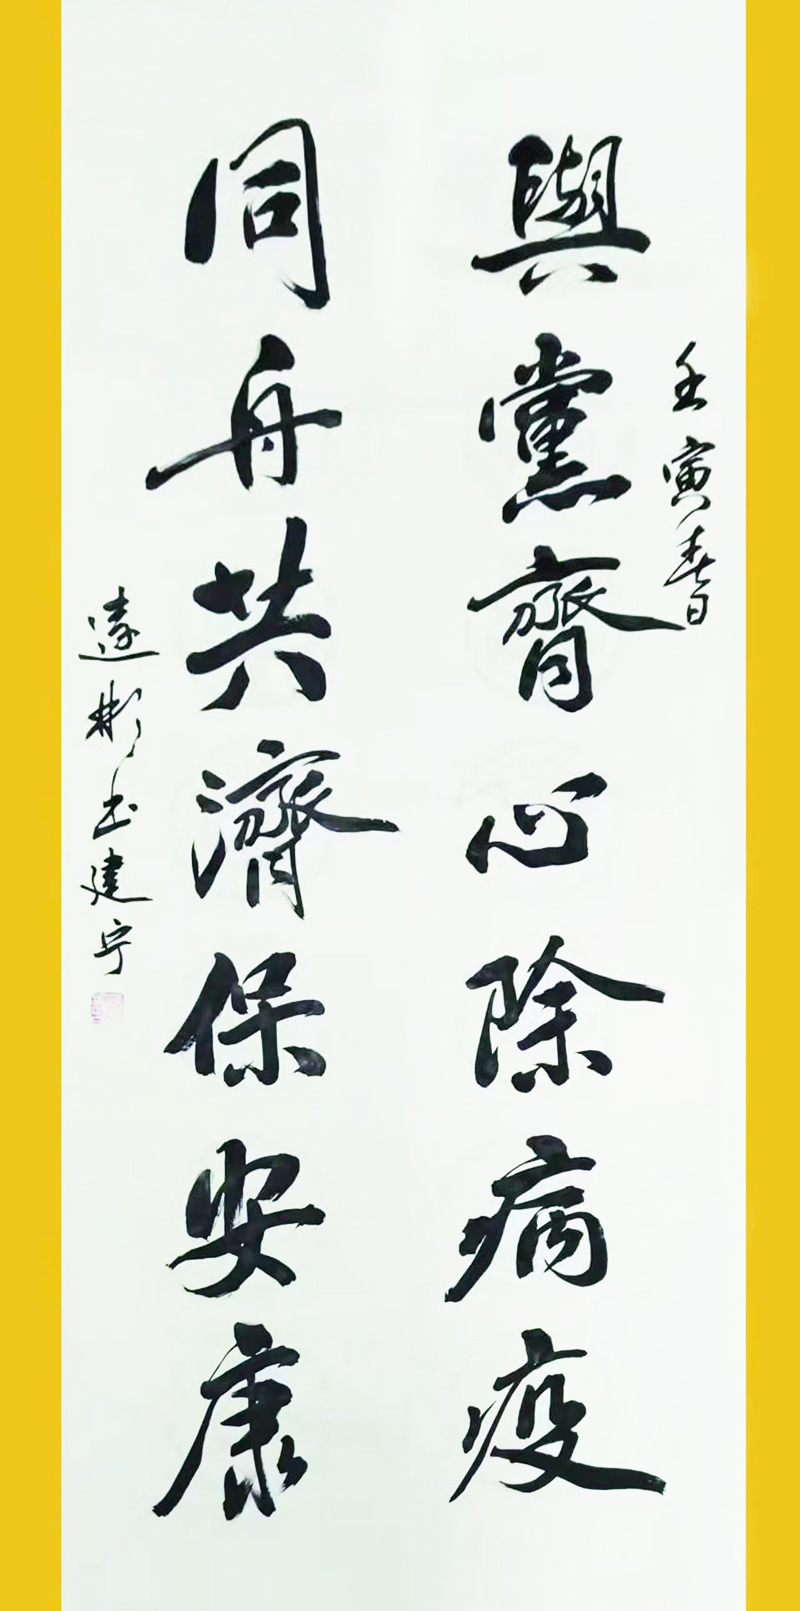 壬寅春
與黨齊心除病疫
同舟共濟保安康
遠彬书建宁